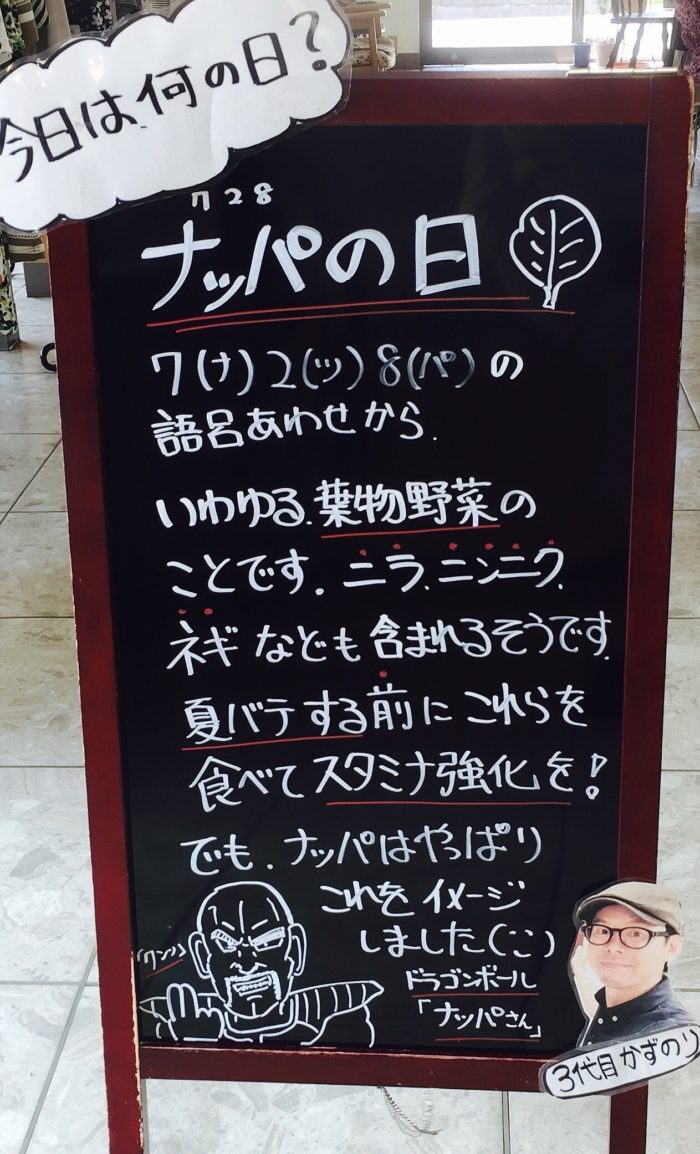 今日は何の日?
7 2 8
ナッパの日
7(ナ)2(ッ)8(パ)の
語呂あわせから.
いわゆる.葉物野菜の
ことです.ニラ.ニンニク.
ネギなども含まれるそうです.
夏バテする前にこれらを
食べてスタミナ強化を!
でも.ナッパはやっぱり
これをイメージ
しました(ˊ:ˋ)
ドラゴンボール
「ナッパさん」
(クンッ)
3代目かずのり